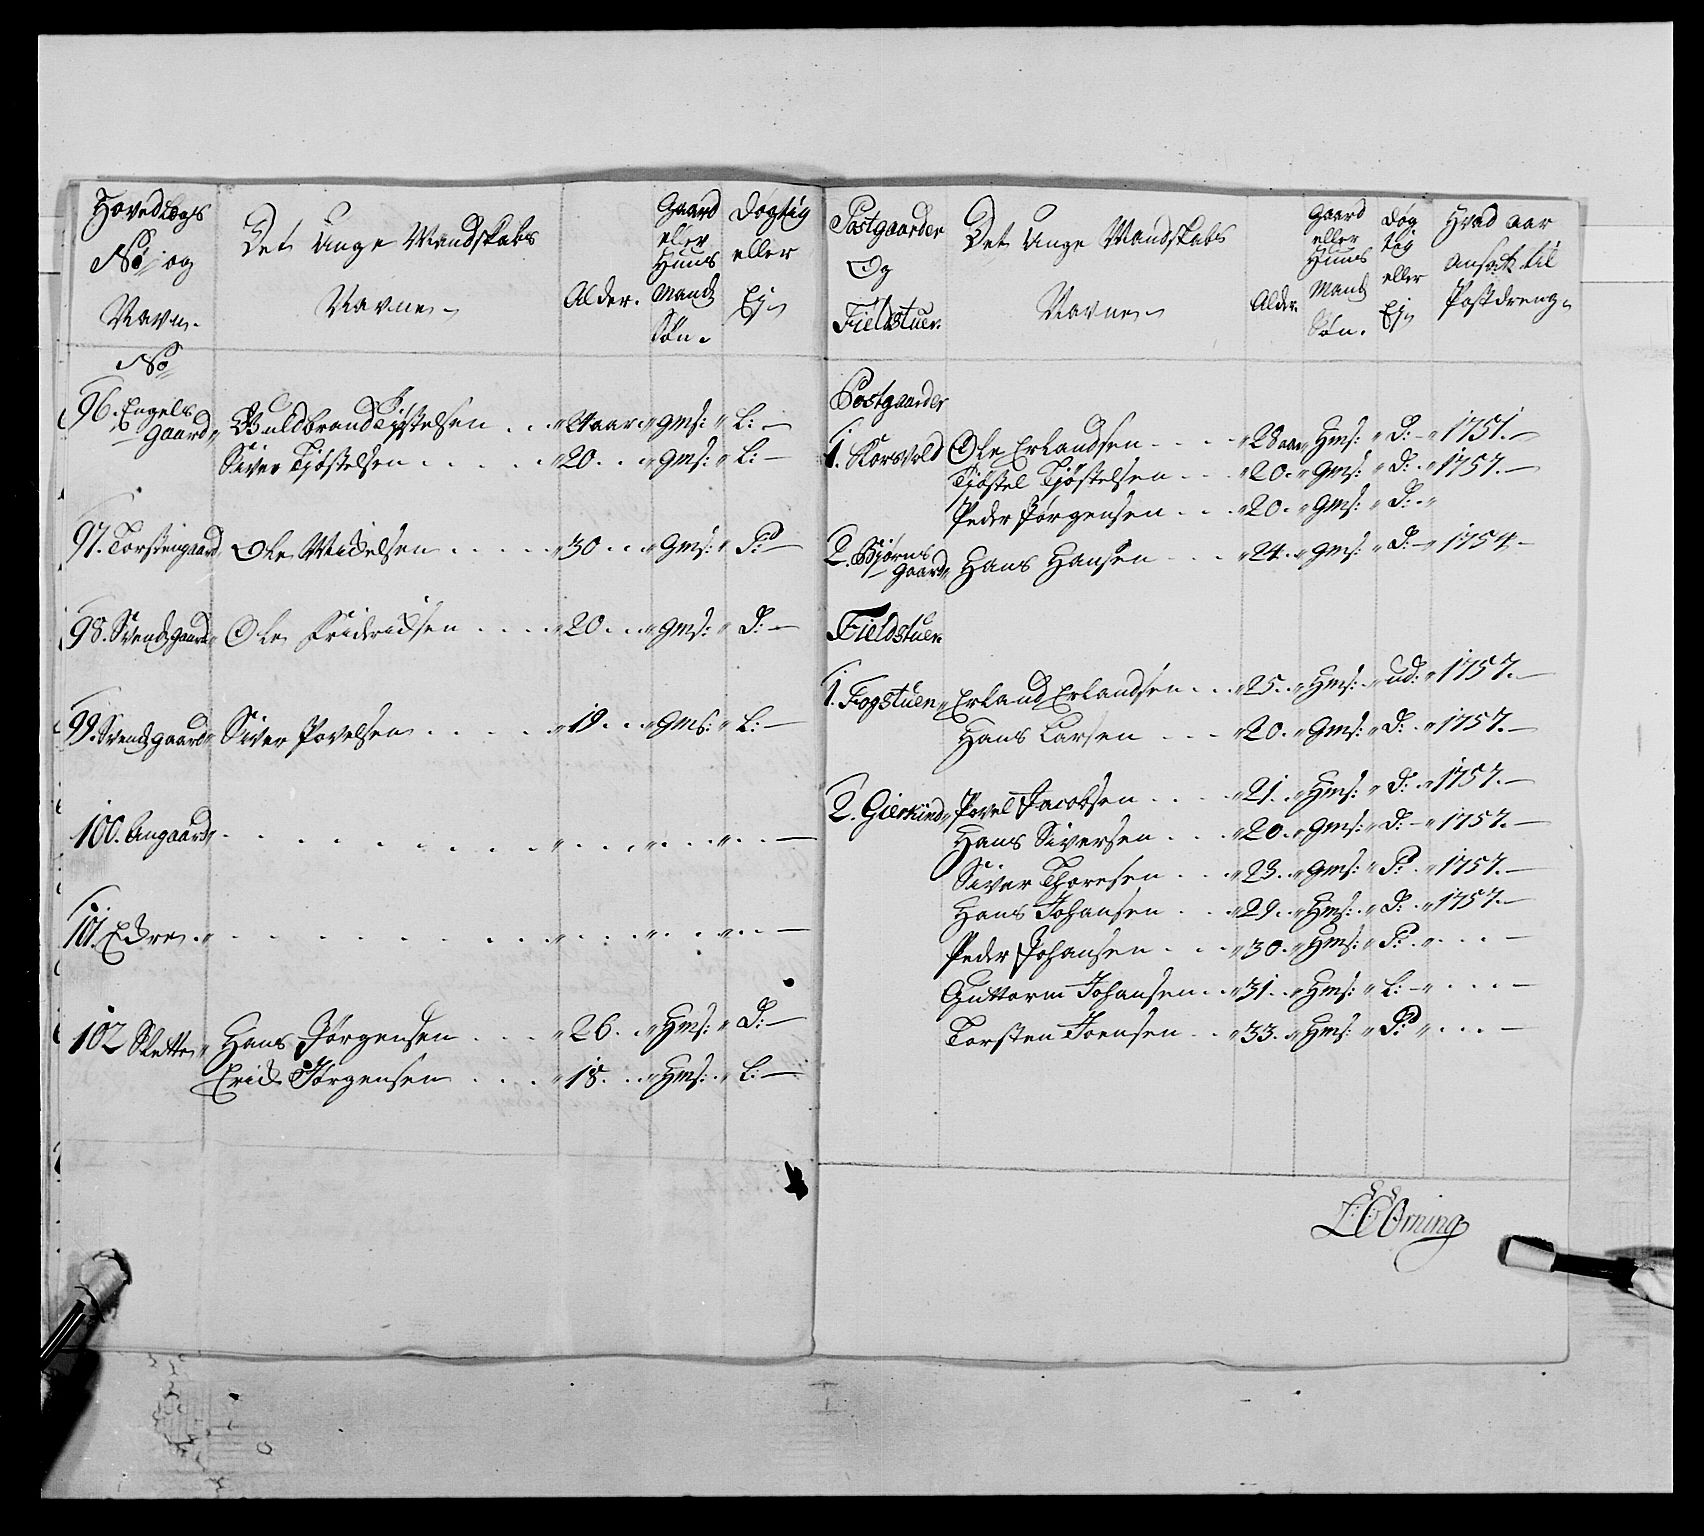 Hovedlægs
No og
Navn.
Det Unge Mandskabs
Navne
Alder.
Gaard
eller
Huus
Mands
Søn.
Døgtig
eller
Ej
No
96. Engels
Gaard Guldbrand Tjøstelsen . . 24 aar gms: L: —
Siver Tjøstelsen . . . . 20 . . gms: L: —
97. Torstengaard Ole Michelsen . . . . 30 . . gms: P: —
98. Svendsgaard Ole Friderichsen . . . 20 . . gms: D: —
99. Svendsgaard Siver Povelsen . . . . 19 . . gms: L: —
100. Angaard . . . . . . . —
101. Echre . . . . . . . —
102 Slette Hans Jørgensen . . . 26 . . Hms: D: —
Erich Jørgensen . . . 18 . . Hms: L: —
Postgaarder
Og
Fieldstuer
Det Unge Mandskabs
Navne
Alder.
Gaard
eller
Huus
Mands
Søn.
Døg
tig
eller
Ej
Hvad aar
Ansat til
Postdreng
Postgaarder
1. Korsvold Ole Erlandsen . . . . 28 aar Hms: D: — 1751. —
Tjøstel Tjøstelsen . . . 20. gms: D: 1757. —
Peder Jørgensen . . . 20. gms: D:
2. Bjørns
Gaard Hans Hansen . . . 24. gms: D: — 1754 —
Fieldstuer
1. Fogstuen Erland Erlandsen . . 25. Hms: ud: 1757. —
Hans Larsen . . . 20. gms: D: 1757. —
2. Gierkind Povel Jacobsen . . . . 21. Hms: D: 1757. —
Hans Siversen . . . 20. gms: D: — 1757. —
Siver Thoresen . . . 23. gms: P: 1757. —
Hans Johansen . . . 29. Hms: D: 1757. —
Peder Johansen . . . 30. Hms: P: . . . —
Guttorm Johansen . . 31. Hms: L: . . . —
Torsten Joensen . . 33. Hms: P: . . . —
Örning